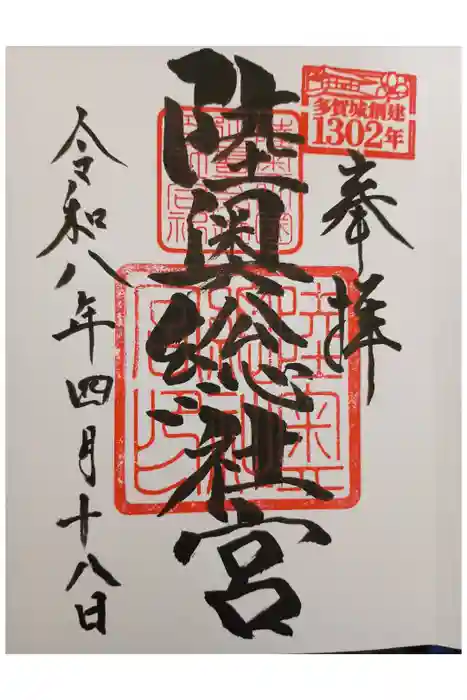 多賀城創建
1302年
奉拝
陸奥総社宮
令和八年四月十八日